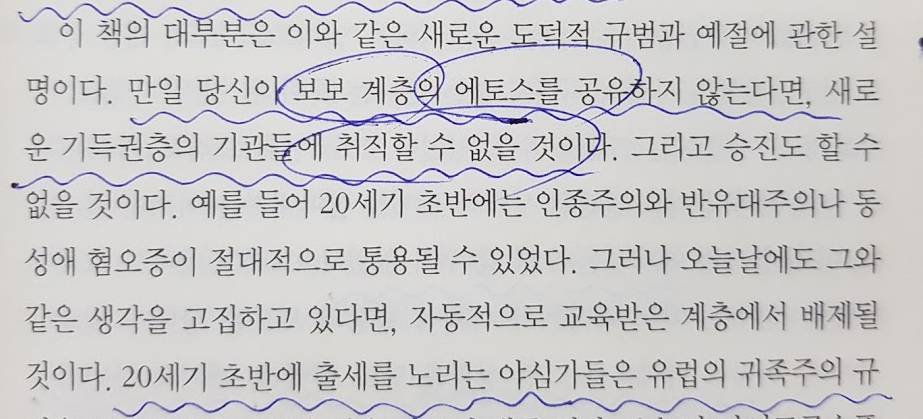 이 책의 대부분은 이와 같은 새로운 도덕적 규범과 예절에 관한 설
명이다. 만일 당신이 보보 계층의 에토스를 공유하지 않는다면, 새로
운 기득권층의 기관들에 취직할 수 없을 것이다. 그리고 승진도 할 수
없을 것이다. 예를 들어 20세기 초반에는 인종주의와 반유대주의나 동
성애 혐오증이 절대적으로 통용될 수 있었다. 그러나 오늘날에도 그와
같은 생각을 고집하고 있다면, 자동적으로 교육받은 계층에서 배제될
것이다. 20세기 초반에 출세를 노리는 야심가들은 유럽의 귀족주의 규